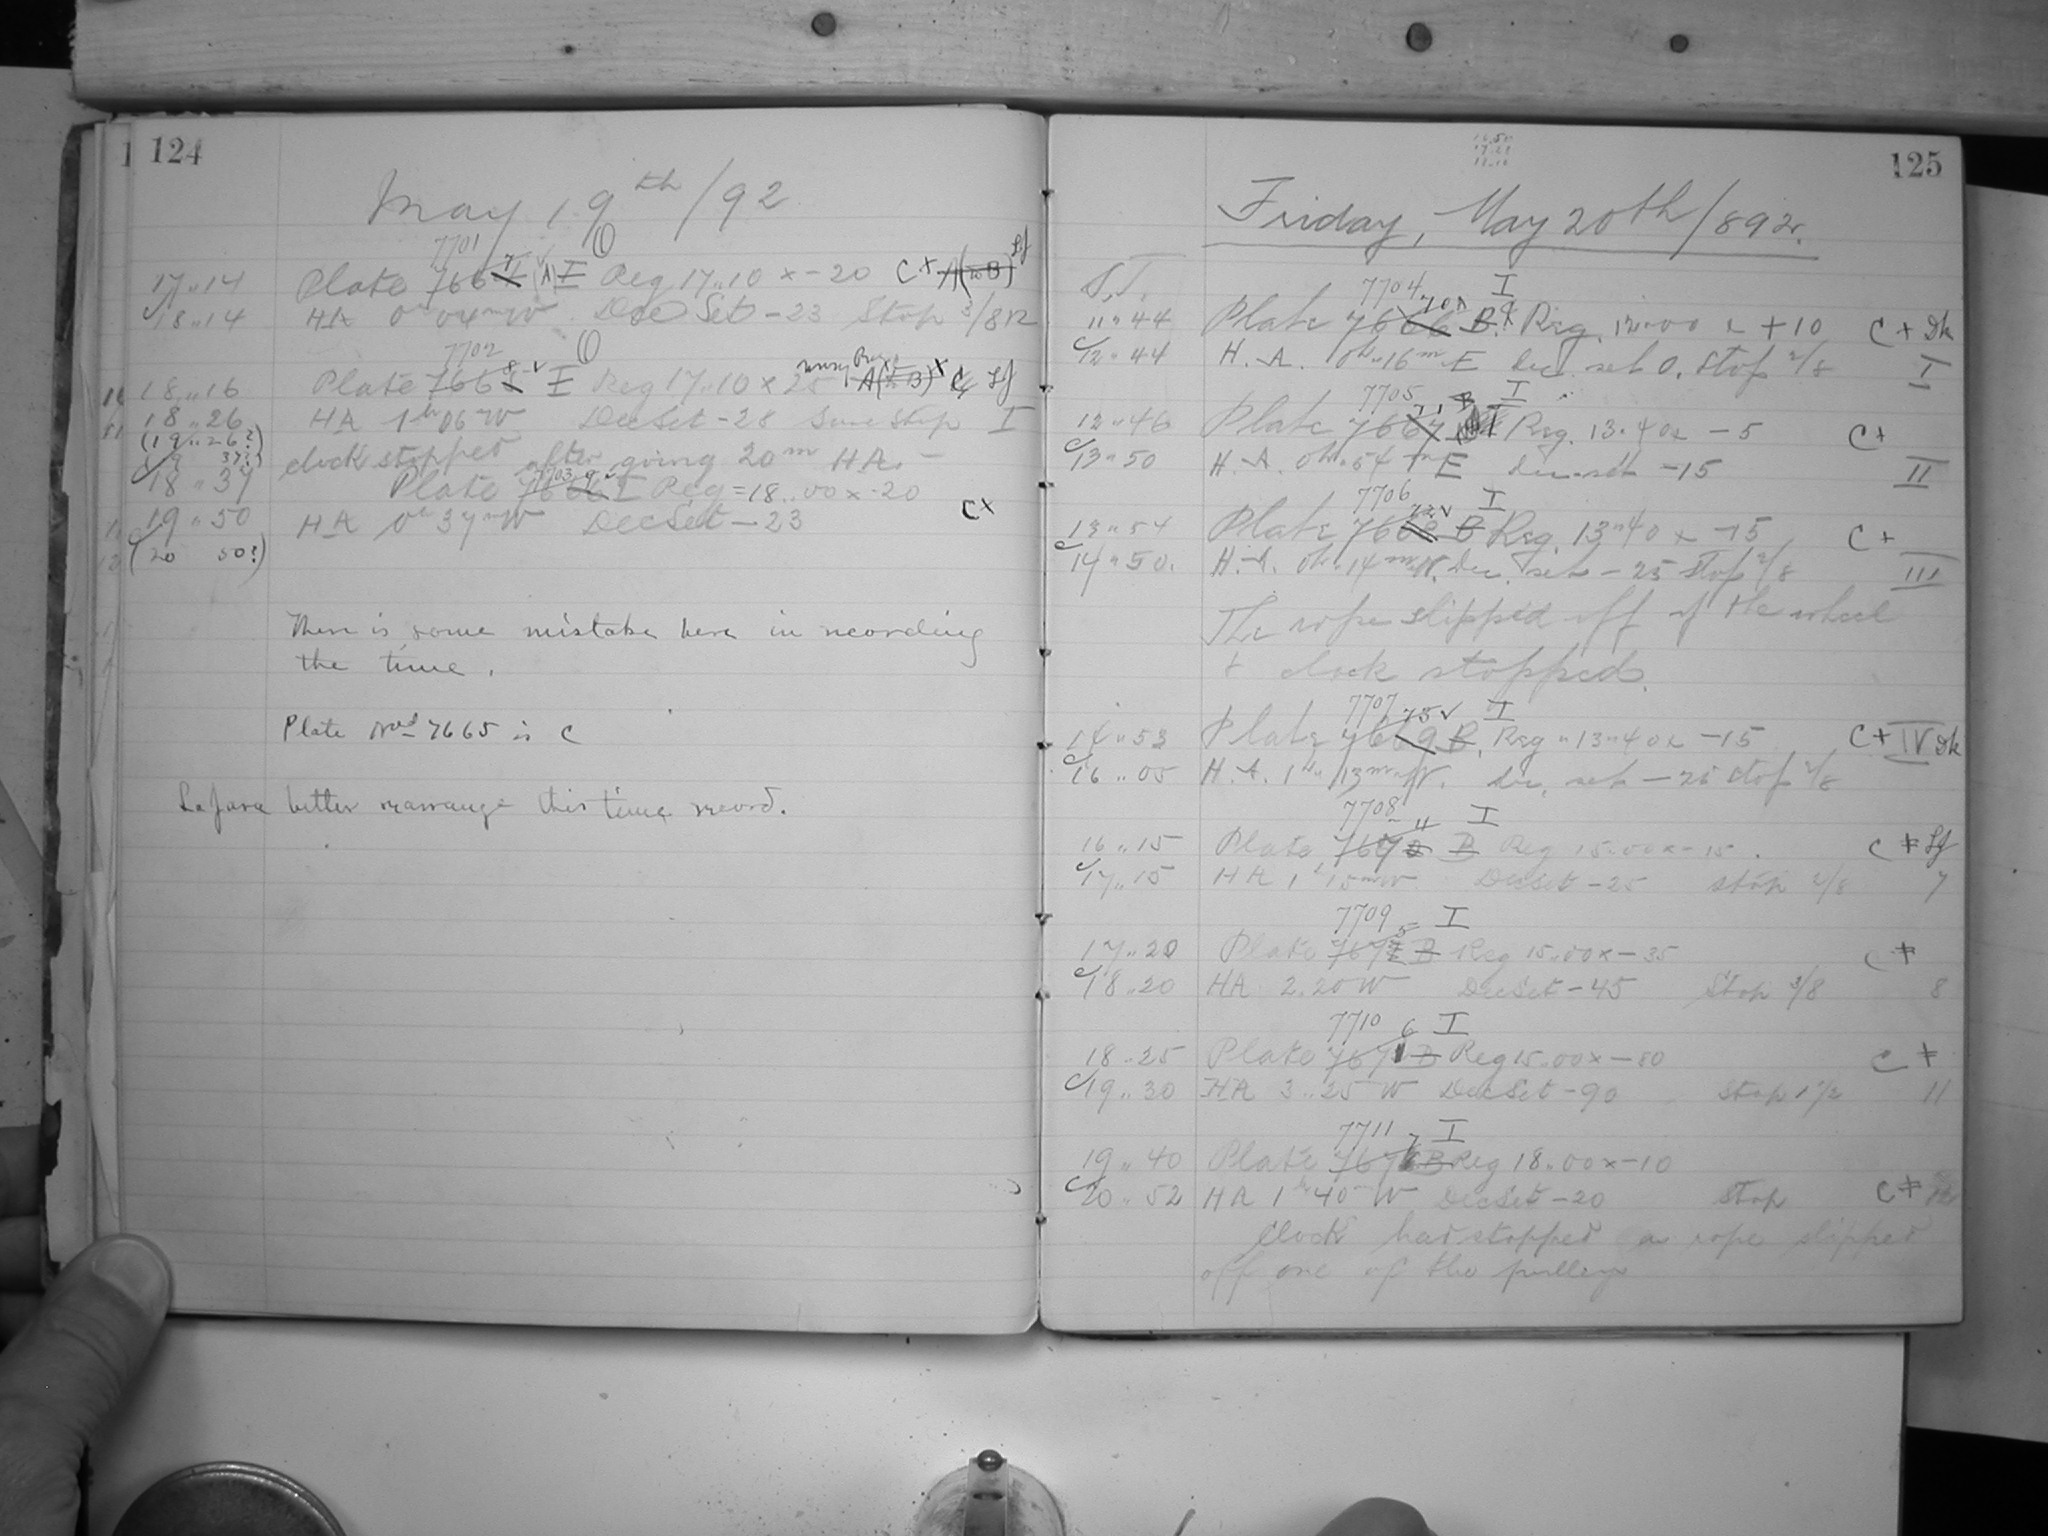 1 124
May 19th /92
7701
17..14 Plate I Reg 17..10 x -20 C x
18..14 HA 0h 04m W Dec Set -23 Stop 3/8
7702
18..16 Plate I Reg 17..10 x 25
18..26 HA 1hr 06m W Dec Set -28 Same Stop I
(19..26?) clock stopped after going 20m HA -
7703
18..37 Plate I Reg = 18..00 x -20
19..50 HA 0h 37m W Dec Set -23 C x
(20 50?)
There is some mistake here in recording
the time.
Plate No 7665 is C
better rearrange this time record.
125
Friday, May 20th /892.
S.T. 7704 I
11"44 Plate B. Reg. 12"00 x +10 C + Dk
12"44 H.A. 0h"16m E Dec. set 0. Stop 2/8 I
7705 I
12"46 Plate 7667 Reg. 13"40 x -5 C +
13"50 H.A. 0h"54m E Dec. set -15 II
7706 I
13"54 Plate 7668 B Reg. 13"40 x -15 C +
14"50. H.A. 0h"14m W. Dec. set -25 Stop 2/8 III
The rope slipped off of the wheel
+ clock stopped.
7707 I
14"53 Plate 7669 B. Reg "13"40 x -15 C + IV Dk
16..05 H.A. 1h"13m W. Dec. set -25 Stop 2/8
7708 I
16..15 Plate B Reg 15..00 x -15. C Lf
17..15 HA 1h 15m W Dec Set -25 Stop 2/8 7
7709 5 I
17..20 Plate B Reg 15..00 x -35 C
18..20 HA 2.20 W Dec Set -45 Stop 3/8 8
7710 6 I
18..25 Plate B Reg 15..00 x -80 C
19..30 HA 3..25 W Dec Set -90 Stop 1 1/2 11
7711 7 I
19..40 Plate B Reg 18..00 x -10
20..52 HA 1h 40m W Dec Set -20 Stop C
Clock had stopped as rope slipped
off one of the pulleys